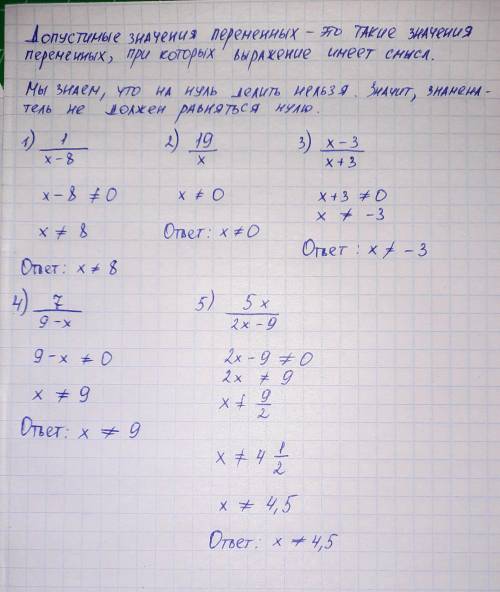 Допустимые значения переменных – это такие значения
переменных, при которых выражение имеет смысл.
Мы знаем, что на нуль делить нельзя. Значит, знамена-
тель не должен равняться нулю.
1) 1/(x-8)
x-8 ≠ 0
x ≠ 8
Ответ: x ≠ 8
2) 19/x
x ≠ 0
Ответ: x ≠ 0
3) (x-3)/(x+3)
x+3 ≠ 0
x ≠ -3
Ответ: x ≠ -3
4) 7/(9-x)
9-x ≠ 0
x ≠ 9
Ответ: x ≠ 9
5) 5x/(2x-9)
2x-9 ≠ 0
2x ≠ 9
x ≠ 9/2
x ≠ 4 1/2
x ≠ 4,5
Ответ: x ≠ 4,5